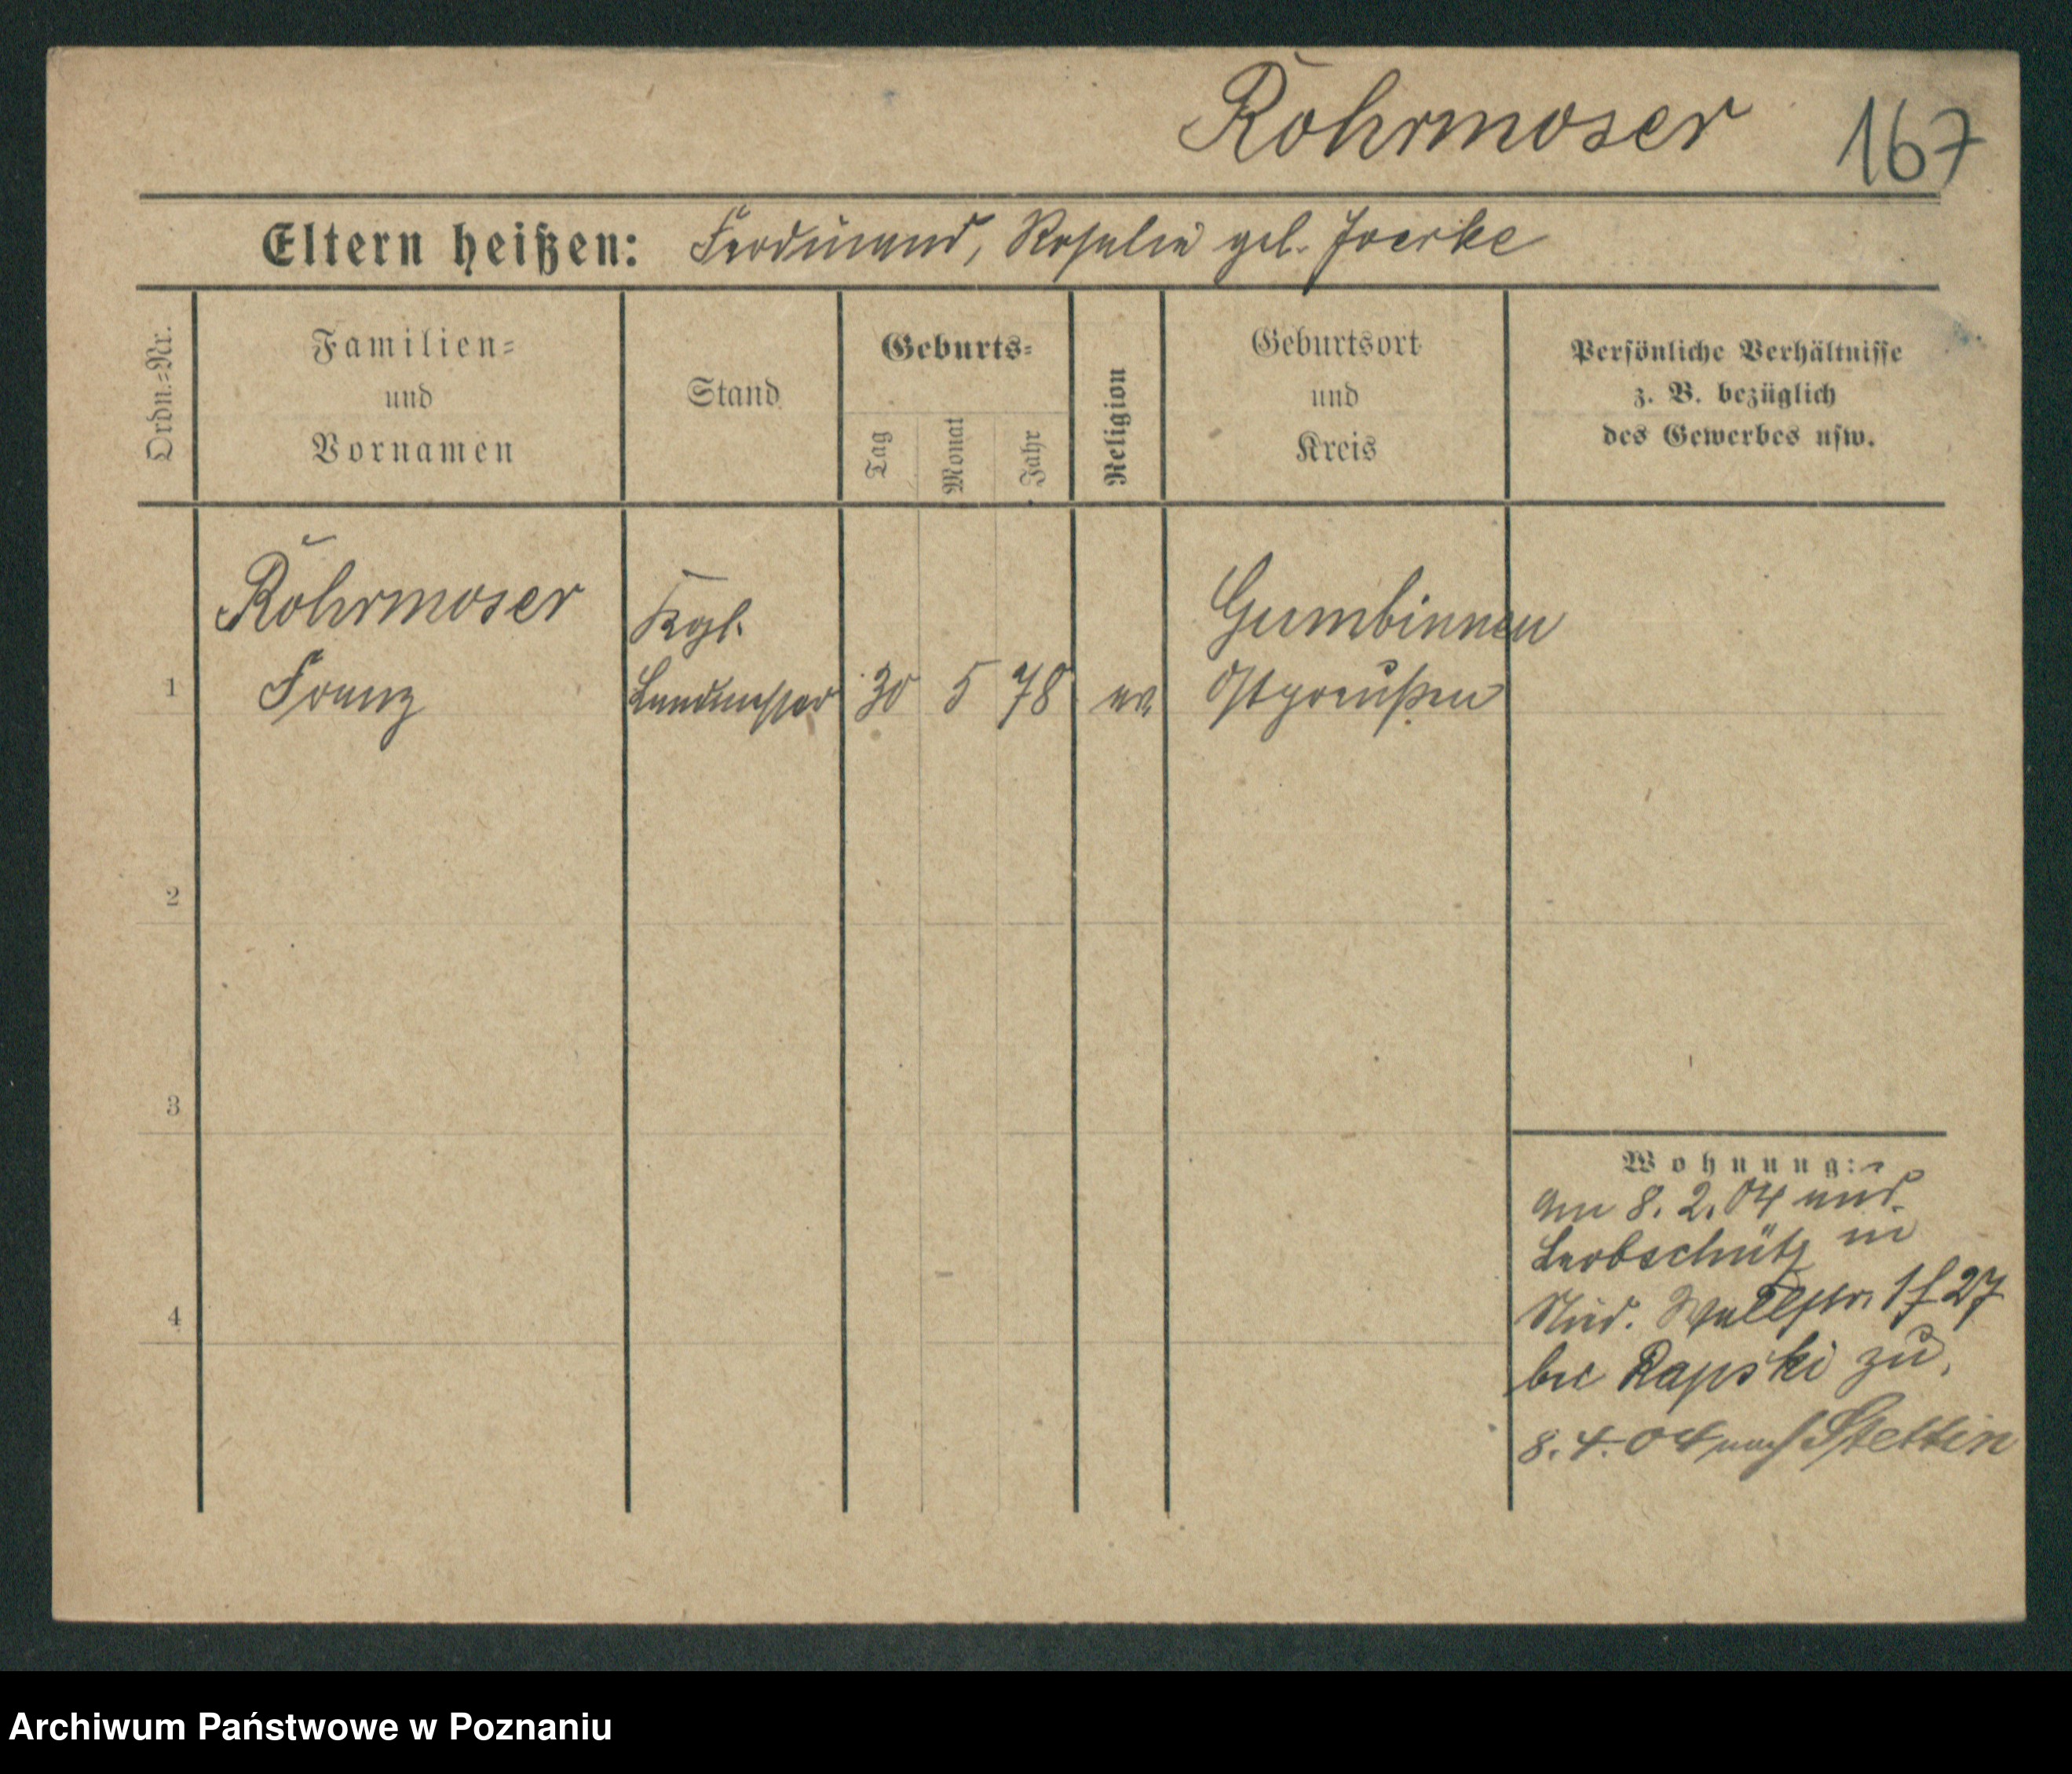 Röhrmoser 167
Eltern heißen: Ferdinand, Rosalie geb. Joerke
Ordn.=Nr.
Familien=
und
Vornamen
Stand
Geburts=
Tag
Monat
Jahr
Religion
Geburtsort
und
Kreis
Persönliche Verhältnisse
z. B. bezüglich
des Gewerbes usw.
Röhrmoser Kgl. Gumbinnen
1 Franz Landmesser 30 5 78 ev. Ostpreußen
2
3
4
Wohnung:
Am 8. 2. 04 aus
Leobschütz in
27
bei Rapski zu.
8. 4. 04 nach Stettin
Archiwum Państwowe w Poznaniu